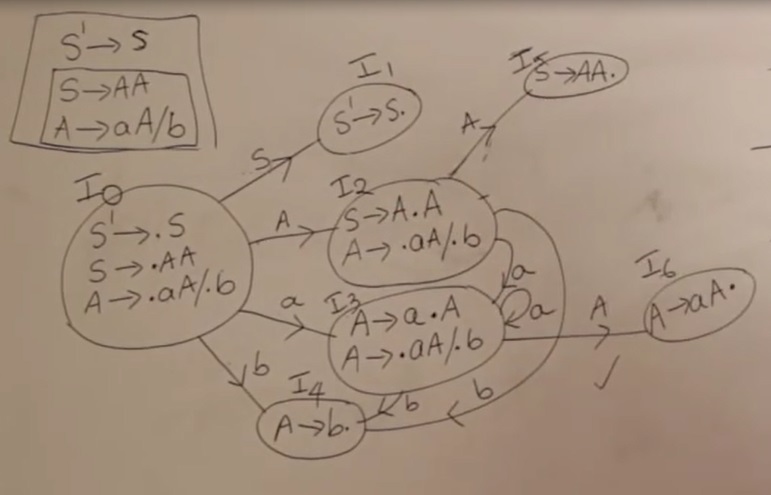 S'→S
S→AA
A→aA/b
I0
S'→.S
S→.AA
A→.aA/.b
S
I1
S'→S.
A
I2
S→A.A
A→.aA/.b
A
I5
S→AA.
a
I3
A→a.A
A→.aA/.b
a
a
A
I6
A→aA.
b
I4
A→b.
b
b